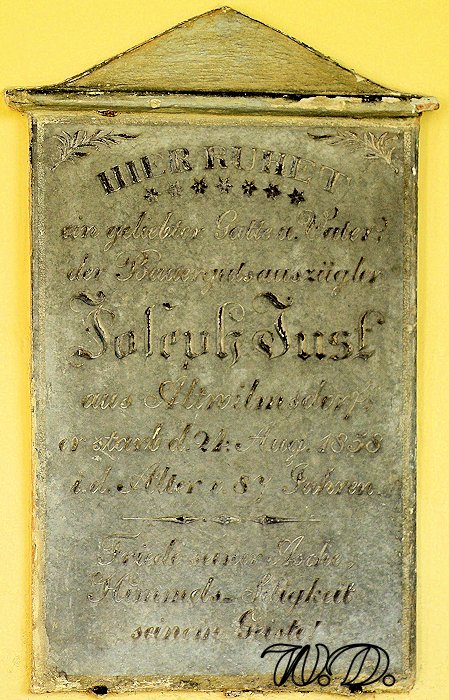 HIER RUHET
ein geliebter Gatte u. Vater:
der Bauergutsauszügler
Joseph Just
aus Altwilmsdorf.
er starb d. 24. Aug. 1858
i. d. Alter v. 87 Jahren.
Friede seiner Asche,
Himmels-Seligkeit
seinem Geiste!
W.D.